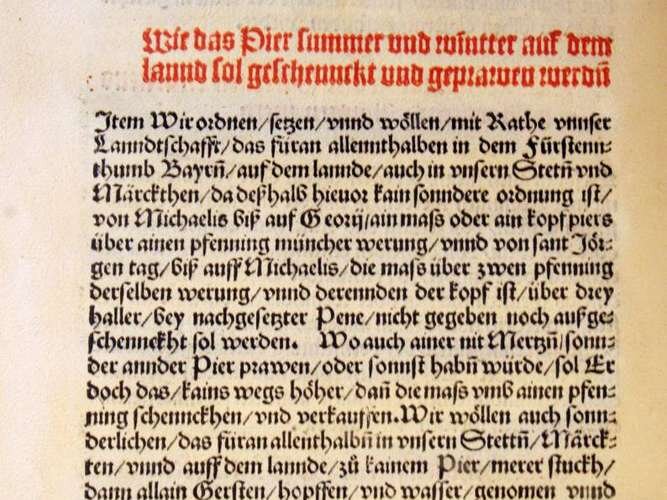 Wie das Pier summer vnd wintter auf dem
lannd sol geschennckt vnd geprawen werdñ
Item Wir ordnen/setzen/vnnd wöllen/mit Rathe vnnser
Lanndtschafft/das füran allennthalben in dem Fürstenn⸗
thumb Bayrñ/auf dem lannde/auch in vnsern Stetñ vnd
Märckthen/da deßhalb hieuor kain sonndere ordnung ist/
von Michaelis biß auf Georij/ain mass oder ain kopf piers
über ainen pfenning müncher werung/vnnd von sant Jör⸗
gen tag/biß auff Michaelis/die mass über zwen pfenning
derselben werung/vnnd derennden der kopf ist/über drey
haller/bey nachgesetzter Pene/nicht gegeben noch außge⸗
schennckht sol werden. Wo auch ainer nit Mertzñ/sonn⸗
der annder Pier prawen/oder sonnst habñ würde/sol Er
doch das/kains wegs höher/dañ die mass vmb ainen pfen⸗
ning schennckhen/vnd verkauffen. Wir wöllen auch sonn⸗
derlichen/das füran allenthalbñ in vnsern Stettñ/Märck⸗
ten/vnnd auff dem lannde/zů kainem Pier/merer stuckh/
dann allain Gersten/hopffen/vnd wasser/genomen vnnd